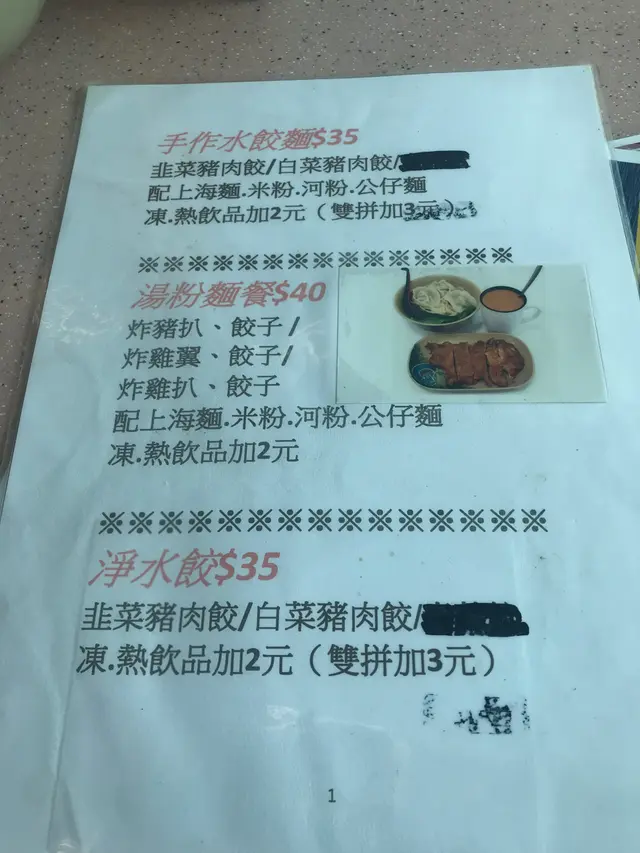 手作水餃麵$35
韭菜豬肉餃/白菜豬肉餃/
配上海麵.米粉.河粉.公仔麵
凍.熱飲品加2元（雙拼加3元）
※※※※※※※※※※※※※※※※
湯粉麵餐$40
炸豬扒、餃子/
炸雞翼、餃子/
炸雞扒、餃子
配上海麵.米粉.河粉.公仔麵
凍.熱飲品加2元
※※※※※※※※※※※※※※※
淨水餃$35
韭菜豬肉餃/白菜豬肉餃/
凍.熱飲品加2元（雙拼加3元）
1